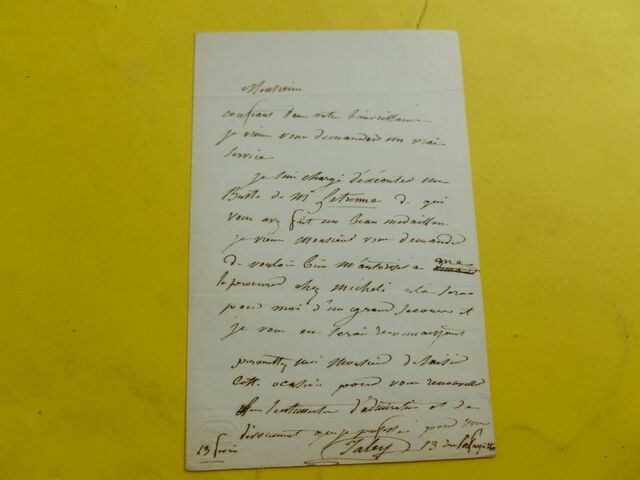 Monsieur
confiant dans votre bienveillance
je viens vous demander un vrai
service
je suis chargé d'éxécuter un
Buste de Mr Letronne de qui
vous avez fait un beau medaillon
je viens Monsieur vous demander
de vouloir bien m'autoriser a me
le procurer chez micheli cela sera
pour moi d'un grand secours et
je vous en serai reconnaissant
permettez moi Monsieur de saisir
cette ocasion pour vous renouveller
les sentiments d'admiration et de
devouement que je professe pour vous
13 fevrier
13 rue lafayette